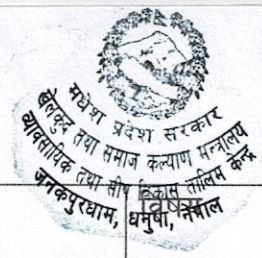 मधेश प्रदेश सरकार
खेलकुद तथा समाज कल्याण मन्त्रालय
व्यावसायिक तथा सीप विकास तालिम केन्द्र
जनकपुरधाम, धनुषा, नेपाल
विषय